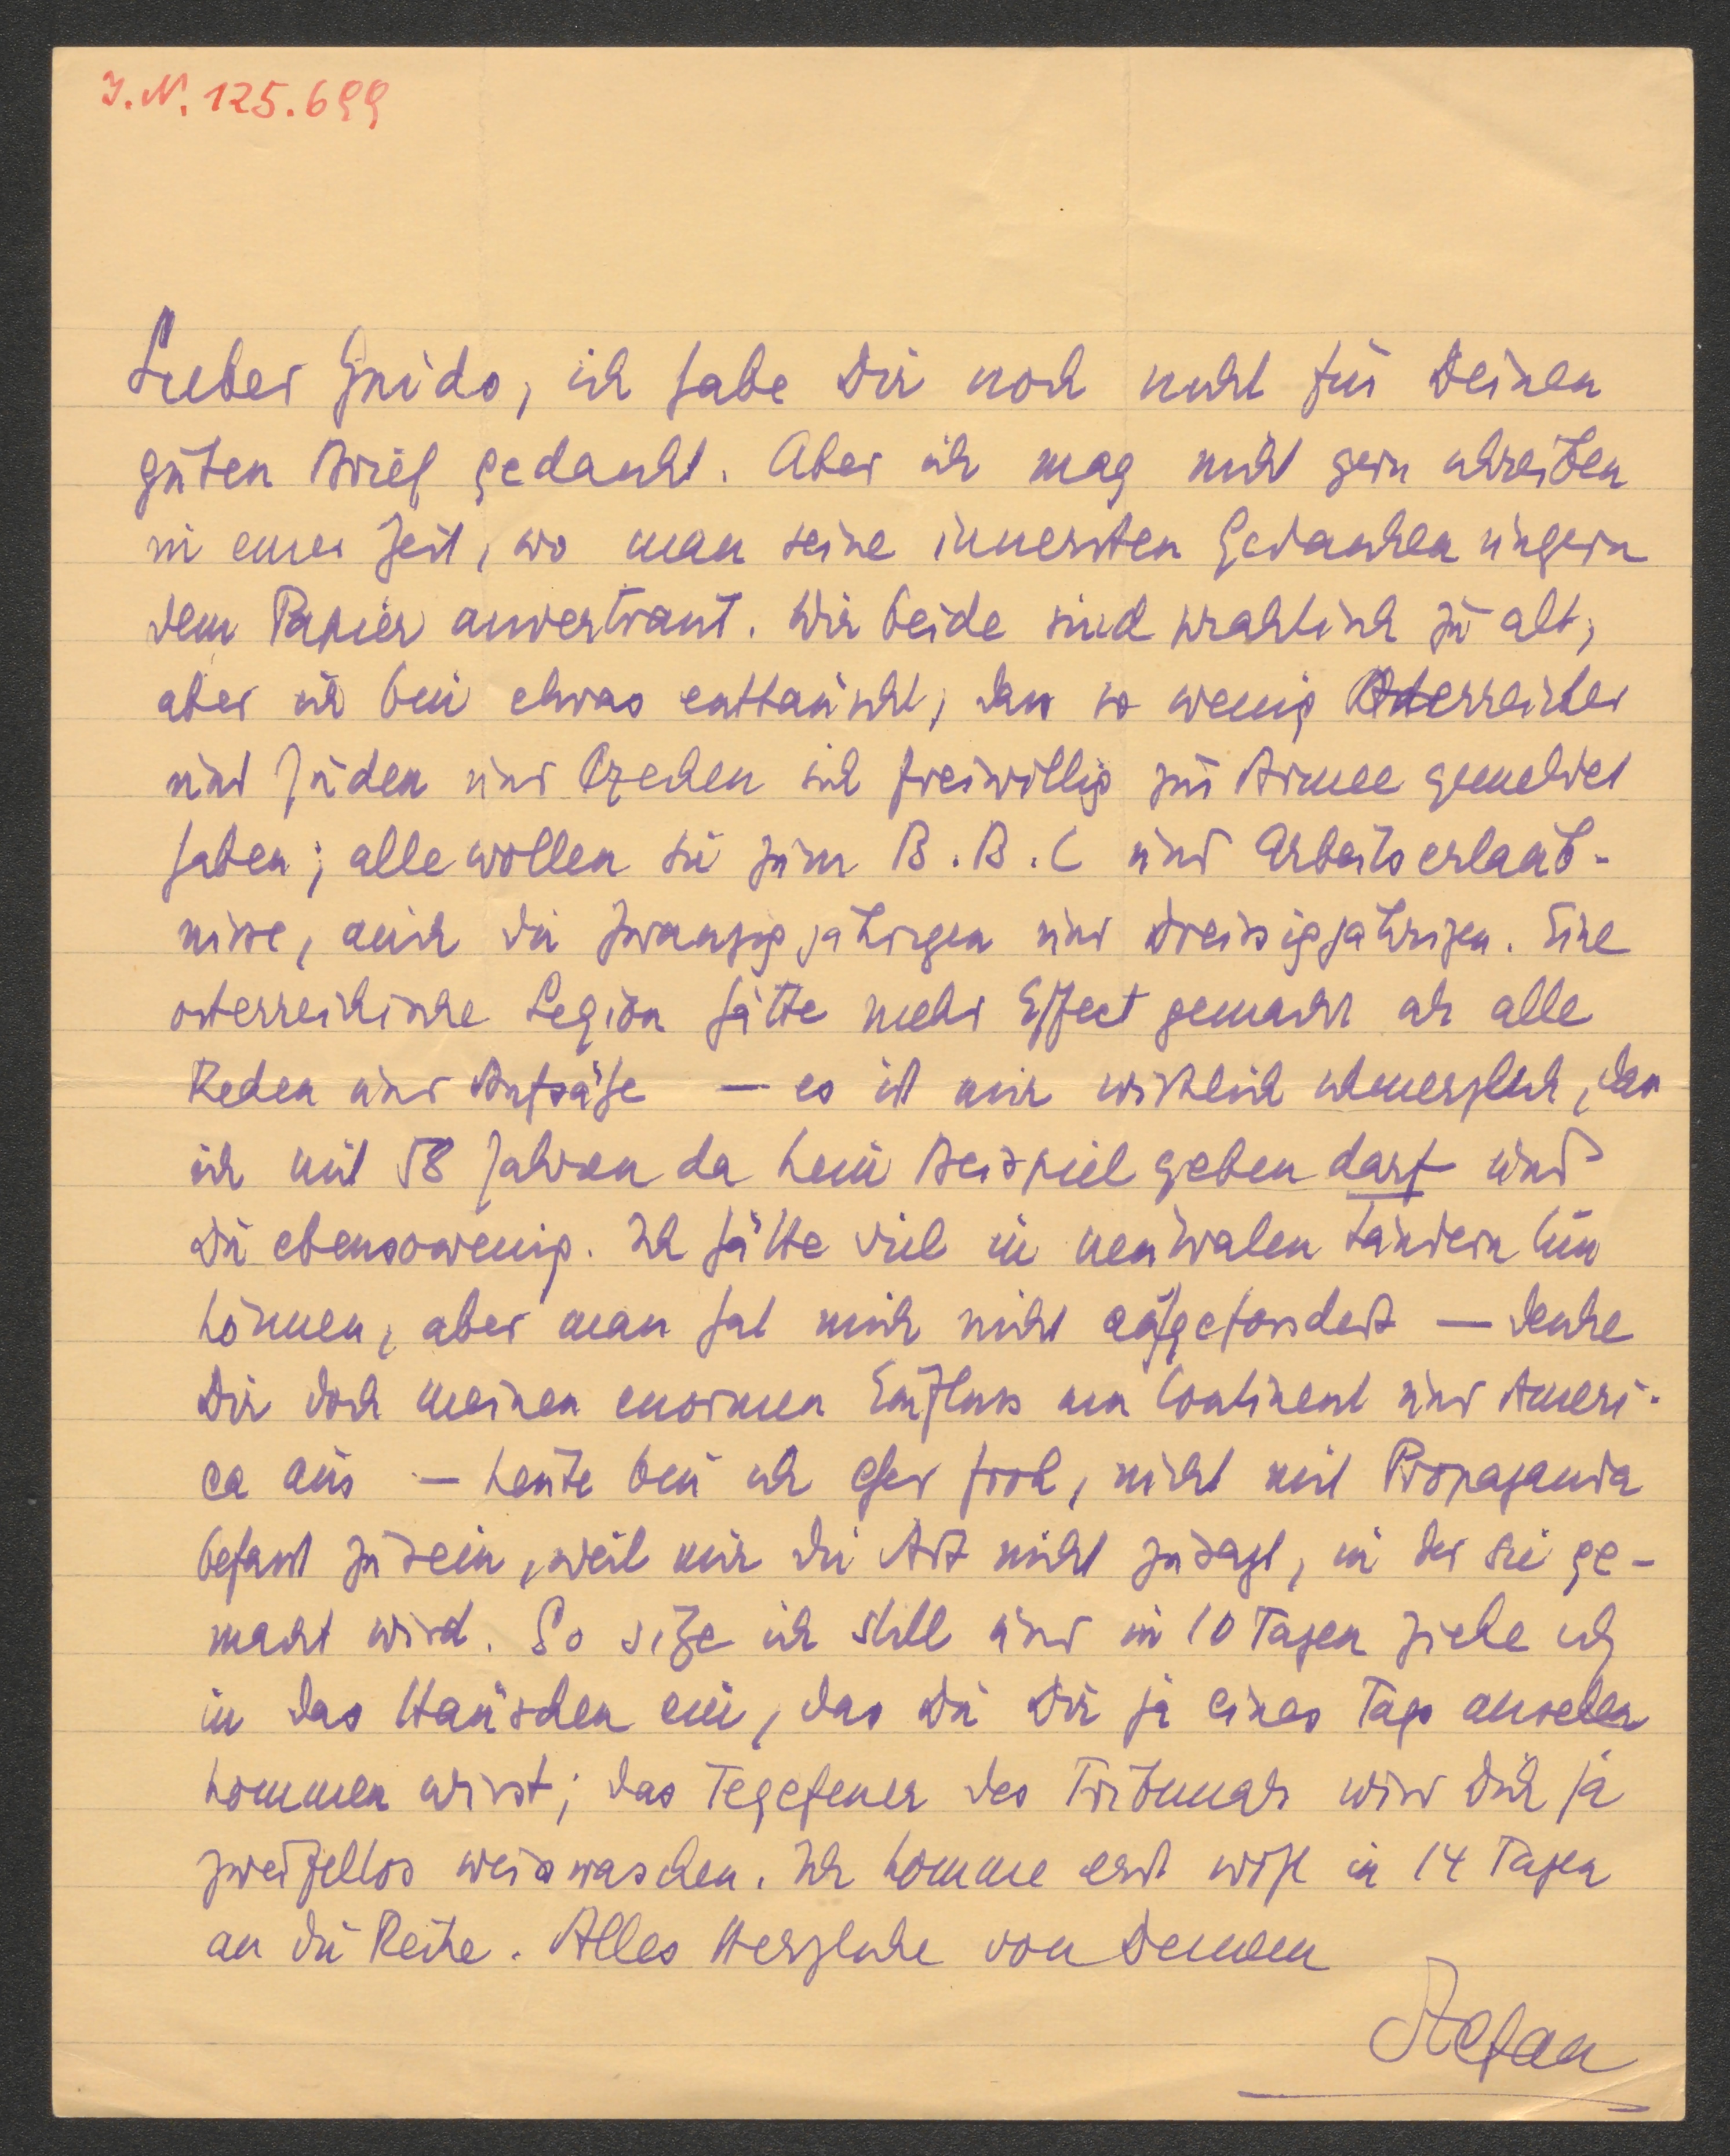 I.N. 125.699
Lieber Guido, ich habe Dir noch nicht für Deinen
guten Brief gedankt. Aber ich mag nicht gern schreiben
in einer Zeit, wo man seine innersten Gedanken ungern
dem Papier anvertraut. Wir beide sind praktisch zu alt,
aber ich bin etwas enttäuscht, dass so wenig Österreicher
und Juden und Czechen sich freiwillig zur Armee gemeldet
haben; alle wollen sie zum B.B.C und Arbeitserlaub-
nisse, auch die Zwanzigjährigen und Dreissigjährigen. Eine
österreichische Legion hätte mehr Effect gemacht als alle
Reden und Aufsätze — es ist mir wirklich schmerzlich, dass
ich mit 58 Jahren da kein Beispiel geben darf und
Du ebensowenig. Ich hätte viel in neutralen Ländern tun
können, aber man hat mich nicht aufgefordert — denke
Dir doch meinen enormen Einfluss am Continent und Ameri-
ca aus — heute bin ich eher froh, nicht mit Propaganda
befasst zu sein, weil mir die Art nicht zusagt, in der sie ge-
macht wird. So sitze ich still und in 10 Tagen ziehe ich
in das Häuschen ein, das Du Dir ja eines Tags ansehen
kommen wirst; das Fegefeuer des Tribunals wird Dich ja
zweifellos weisswaschen. Ich komme erst wohl in 14 Tagen
an die Reihe. Alles Herzliche von Deinem
Stefan